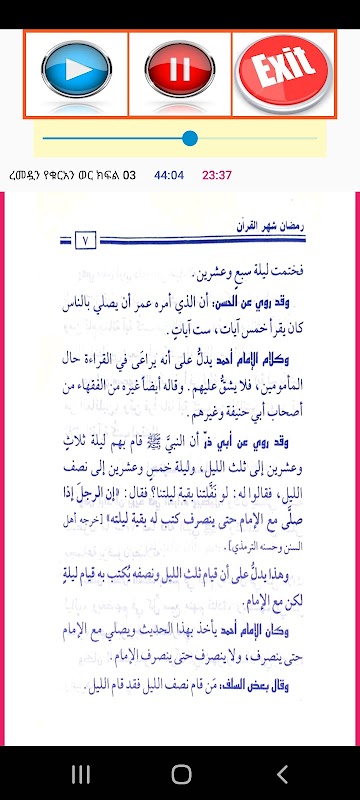 Exit
ረመዷን የቁርአን ወር ክፍል 03 44:04 23:37
رمضان شهر القرآن
٧
فختمت ليلة سبع وعشرين.
وقد روي عن الحسن: أن الذي أمره عمر أن يصلي بالناس
كان يقرأ خمس آيات، ست آياتٍ.
وكلام الإمام أحمد يدلُّ على أنه يراعَى في القراءة حال
المأمومين، فلا يشقُّ عليهم. وقاله أيضاً غيره من الفقهاء من
أصحاب أبي حنيفة وغيرهم.
وقد روي عن أبي ذرّ أن النبيَّ ﷺ قام بهم ليلة ثلاثٍ
وعشرين إلى ثلث الليل، وليلة خمسٍ وعشرين إلى نصف
الليل، فقالوا له: لو نَفَّلْتنا بقية ليلتنا؟ فقال: «إن الرجلَ إذا
صلَّى مع الإمام حتى ينصرف كتب له بقية ليلته» [خرجه أهل
السنن وحسنه الترمذي].
وهذا يدلُّ على أن قيام ثلث الليل ونصفه يُكتب به قيام ليلةٍ
لكن مع الإمام.
وكان الإمام أحمد يأخذ بهذا الحديث ويصلي مع الإمام
حتى ينصرف، ولا ينصرف حتى ينصرف الإمام.
وقال بعض السلف: مَن قام نصف الليل فقد قام الليل.